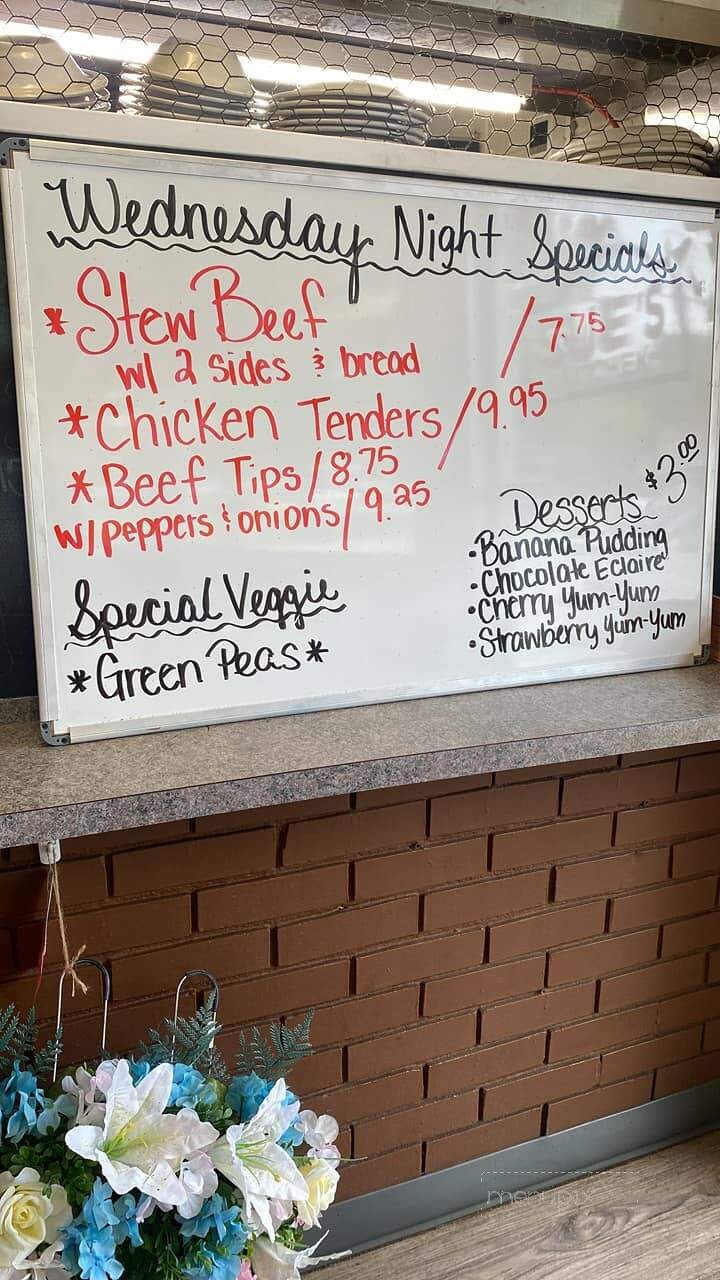 Wednesday Night Specials
*Stew Beef /7.75
w/ 2 sides & bread
*Chicken Tenders/9.95
*Beef Tips/8.75
w/peppers & onions/9.25
Desserts $3.00
•Banana Pudding
•Chocolate Eclaire
•Cherry Yum-Yum
•Strawberry Yum-Yum
Special Veggie
*Green Peas*
menupix